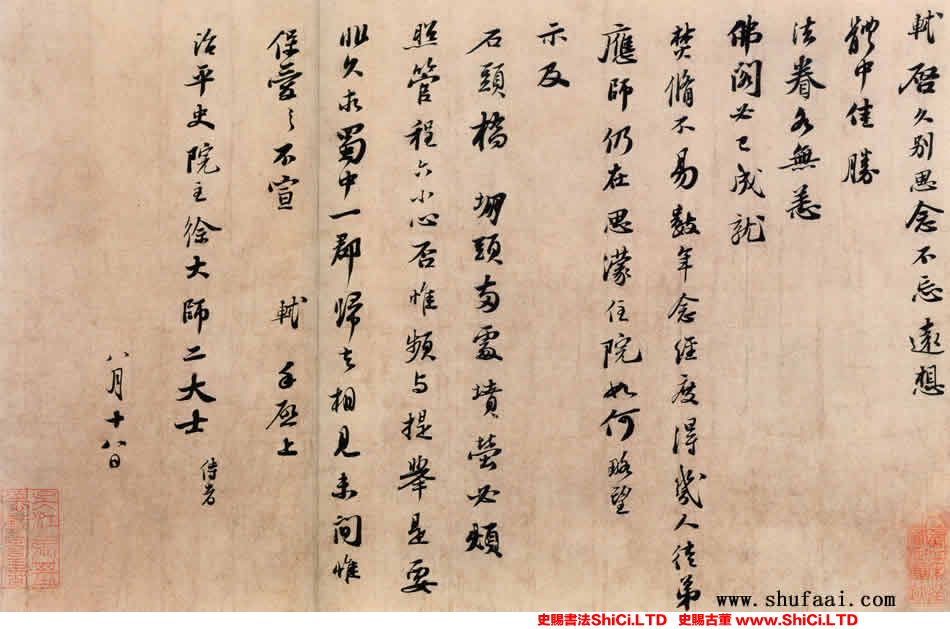 軾啓久别思念不忘遠想
體中佳勝
法眷各無恙
佛閣必已成就
焚脩不易數年念經度得幾人徒弟
應師仍在思濛住院如何略望
示及
石頭橋堋頭兩處墳塋必煩
照管程六小心否惟頻与提舉是要
非久求蜀中一郡歸去相見未間惟
保愛之不宣 軾手啓上
治平史院主徐大師二大士 侍者
八月十八日
www.shufaai.com
史賜書法ShiCi.LTD 史賜古董 www.ShiCi.LTD